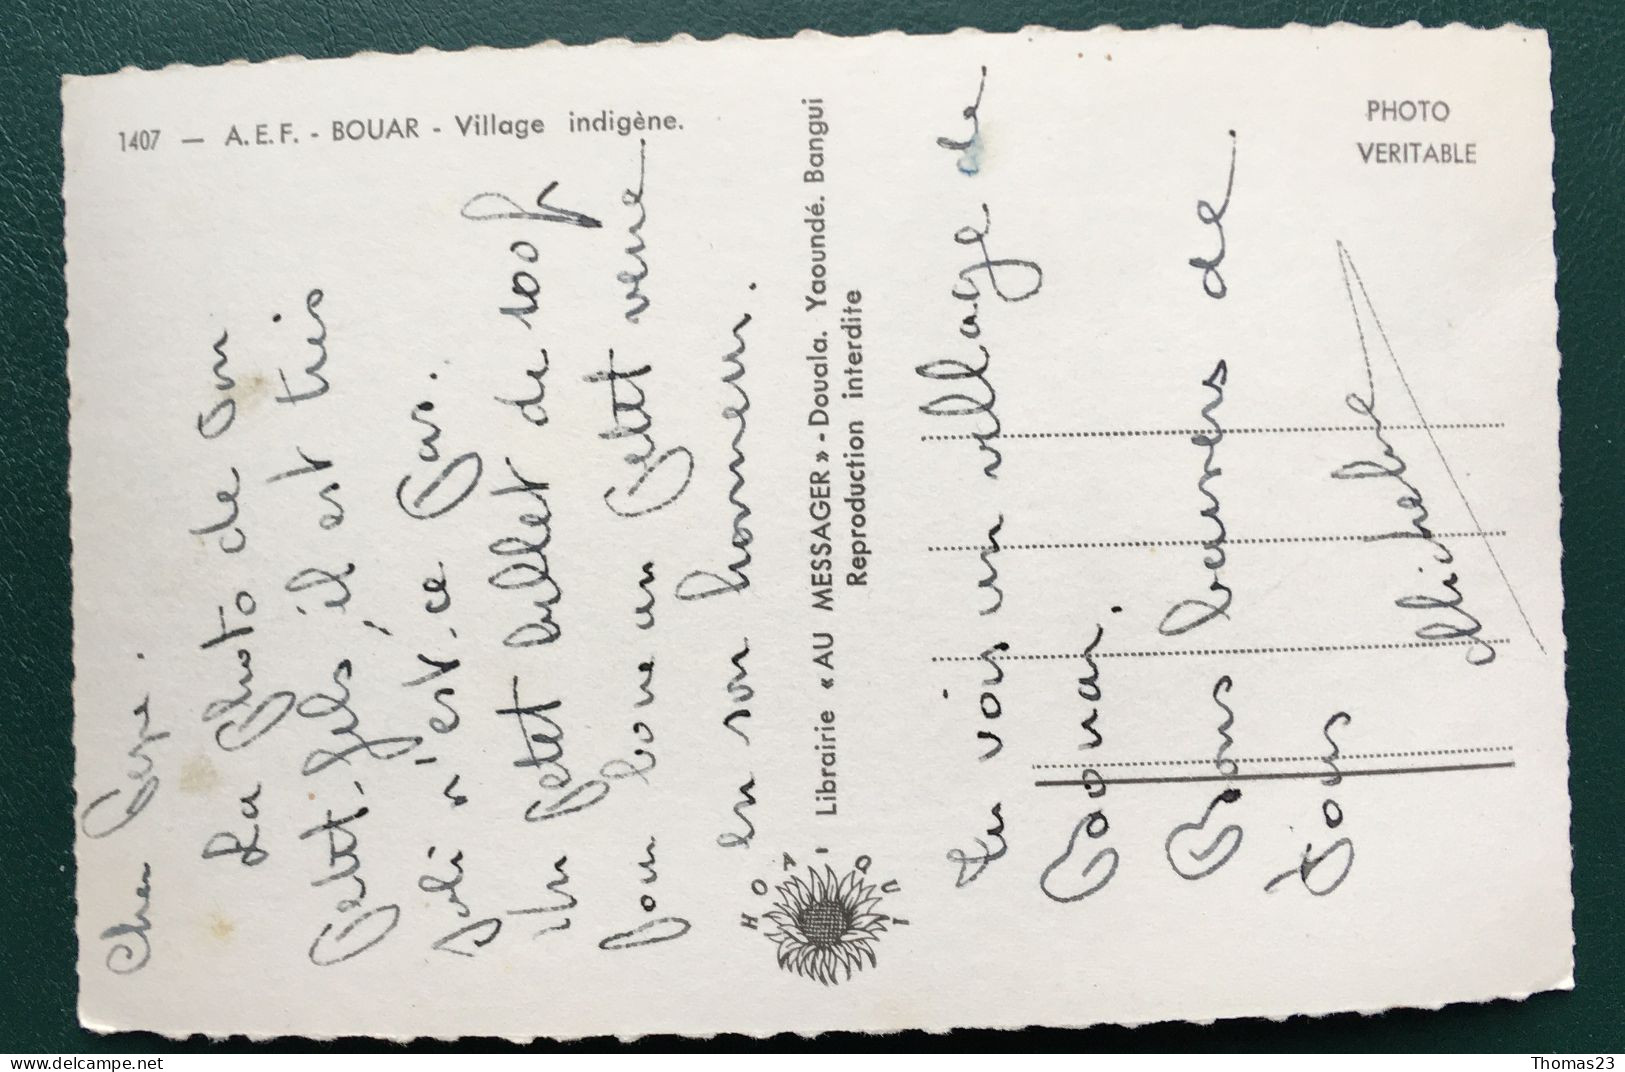 1407 — A.E.F. - BOUAR - Village indigène.
PHOTO
VERITABLE
Cher Pepe.
La Photo de Son
Petit-fils, il est très
joli n'est-ce Pas.
Un Petit billet de 100 fr
Pour boire un Petit verre
en son honneur.
Librairie « AU MESSAGER » - Douala. Yaoundé. Bangui
Reproduction interdite
HOA-QUI
Tu vois un village de
Bouar.
Bons baisers de
Tous
Micheline
delcampe.net
Thomas23